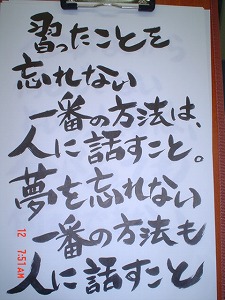 習ったことを
忘れない
一番の方法は、
人に話すこと。
夢を忘れない
一番の方法も
人に話すこと
12 7:51AM